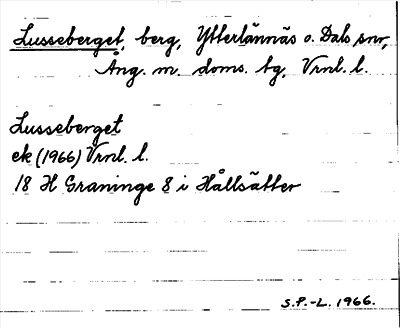 Lusseberget, berg, Ytterlännäs o. Dals snr,
Ång. m. doms. tg, Vrnl. l.
Lusseberget
ek (1966) Vrnl. l.
18 H Graninge 8 i Hållsätter
S.P.-L. 1966.